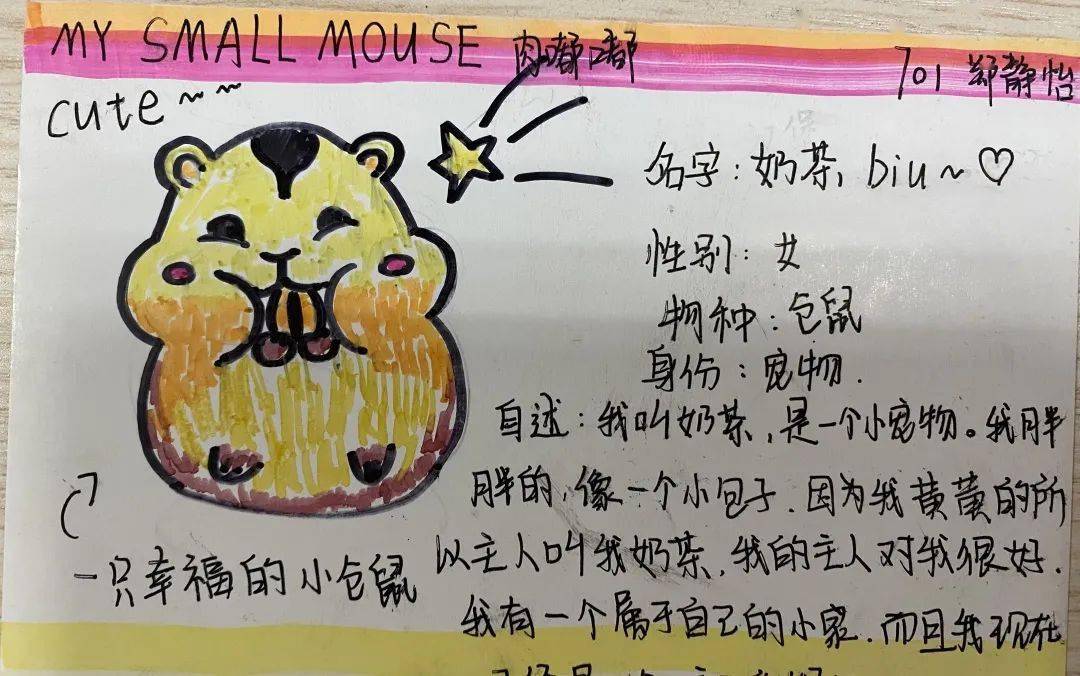 MY SMALL MOUSE 肉嘟嘟
701 郑静怡
cute~~
名字:奶茶, biu~♡
性别:女
物种:仓鼠
身份:宠物.
自述:我叫奶茶,是一个小宠物。我胖
胖的,像一个小包子.因为我黄黄的所
以主人叫我奶茶,我的主人对我很好.
我有一个属于自己的小家.而且我现在
一只幸福的小仓鼠